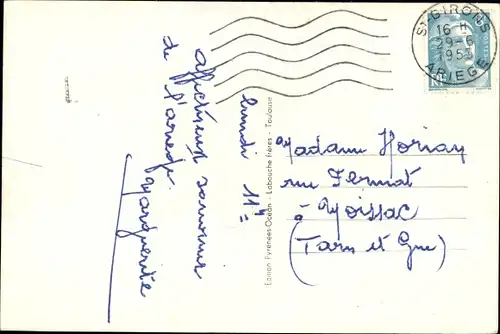 lundi 11h
affectueux souvenirs
de l'Ariège.
Marguerite
Edition Pyrénées-Océan - Labouche Frères - Toulouse
ST-GIRONS
16 H
9-6
1953
ARIEGE
Madame Horiay
rue Fermat
à Moissac
(Tarn et Gne)